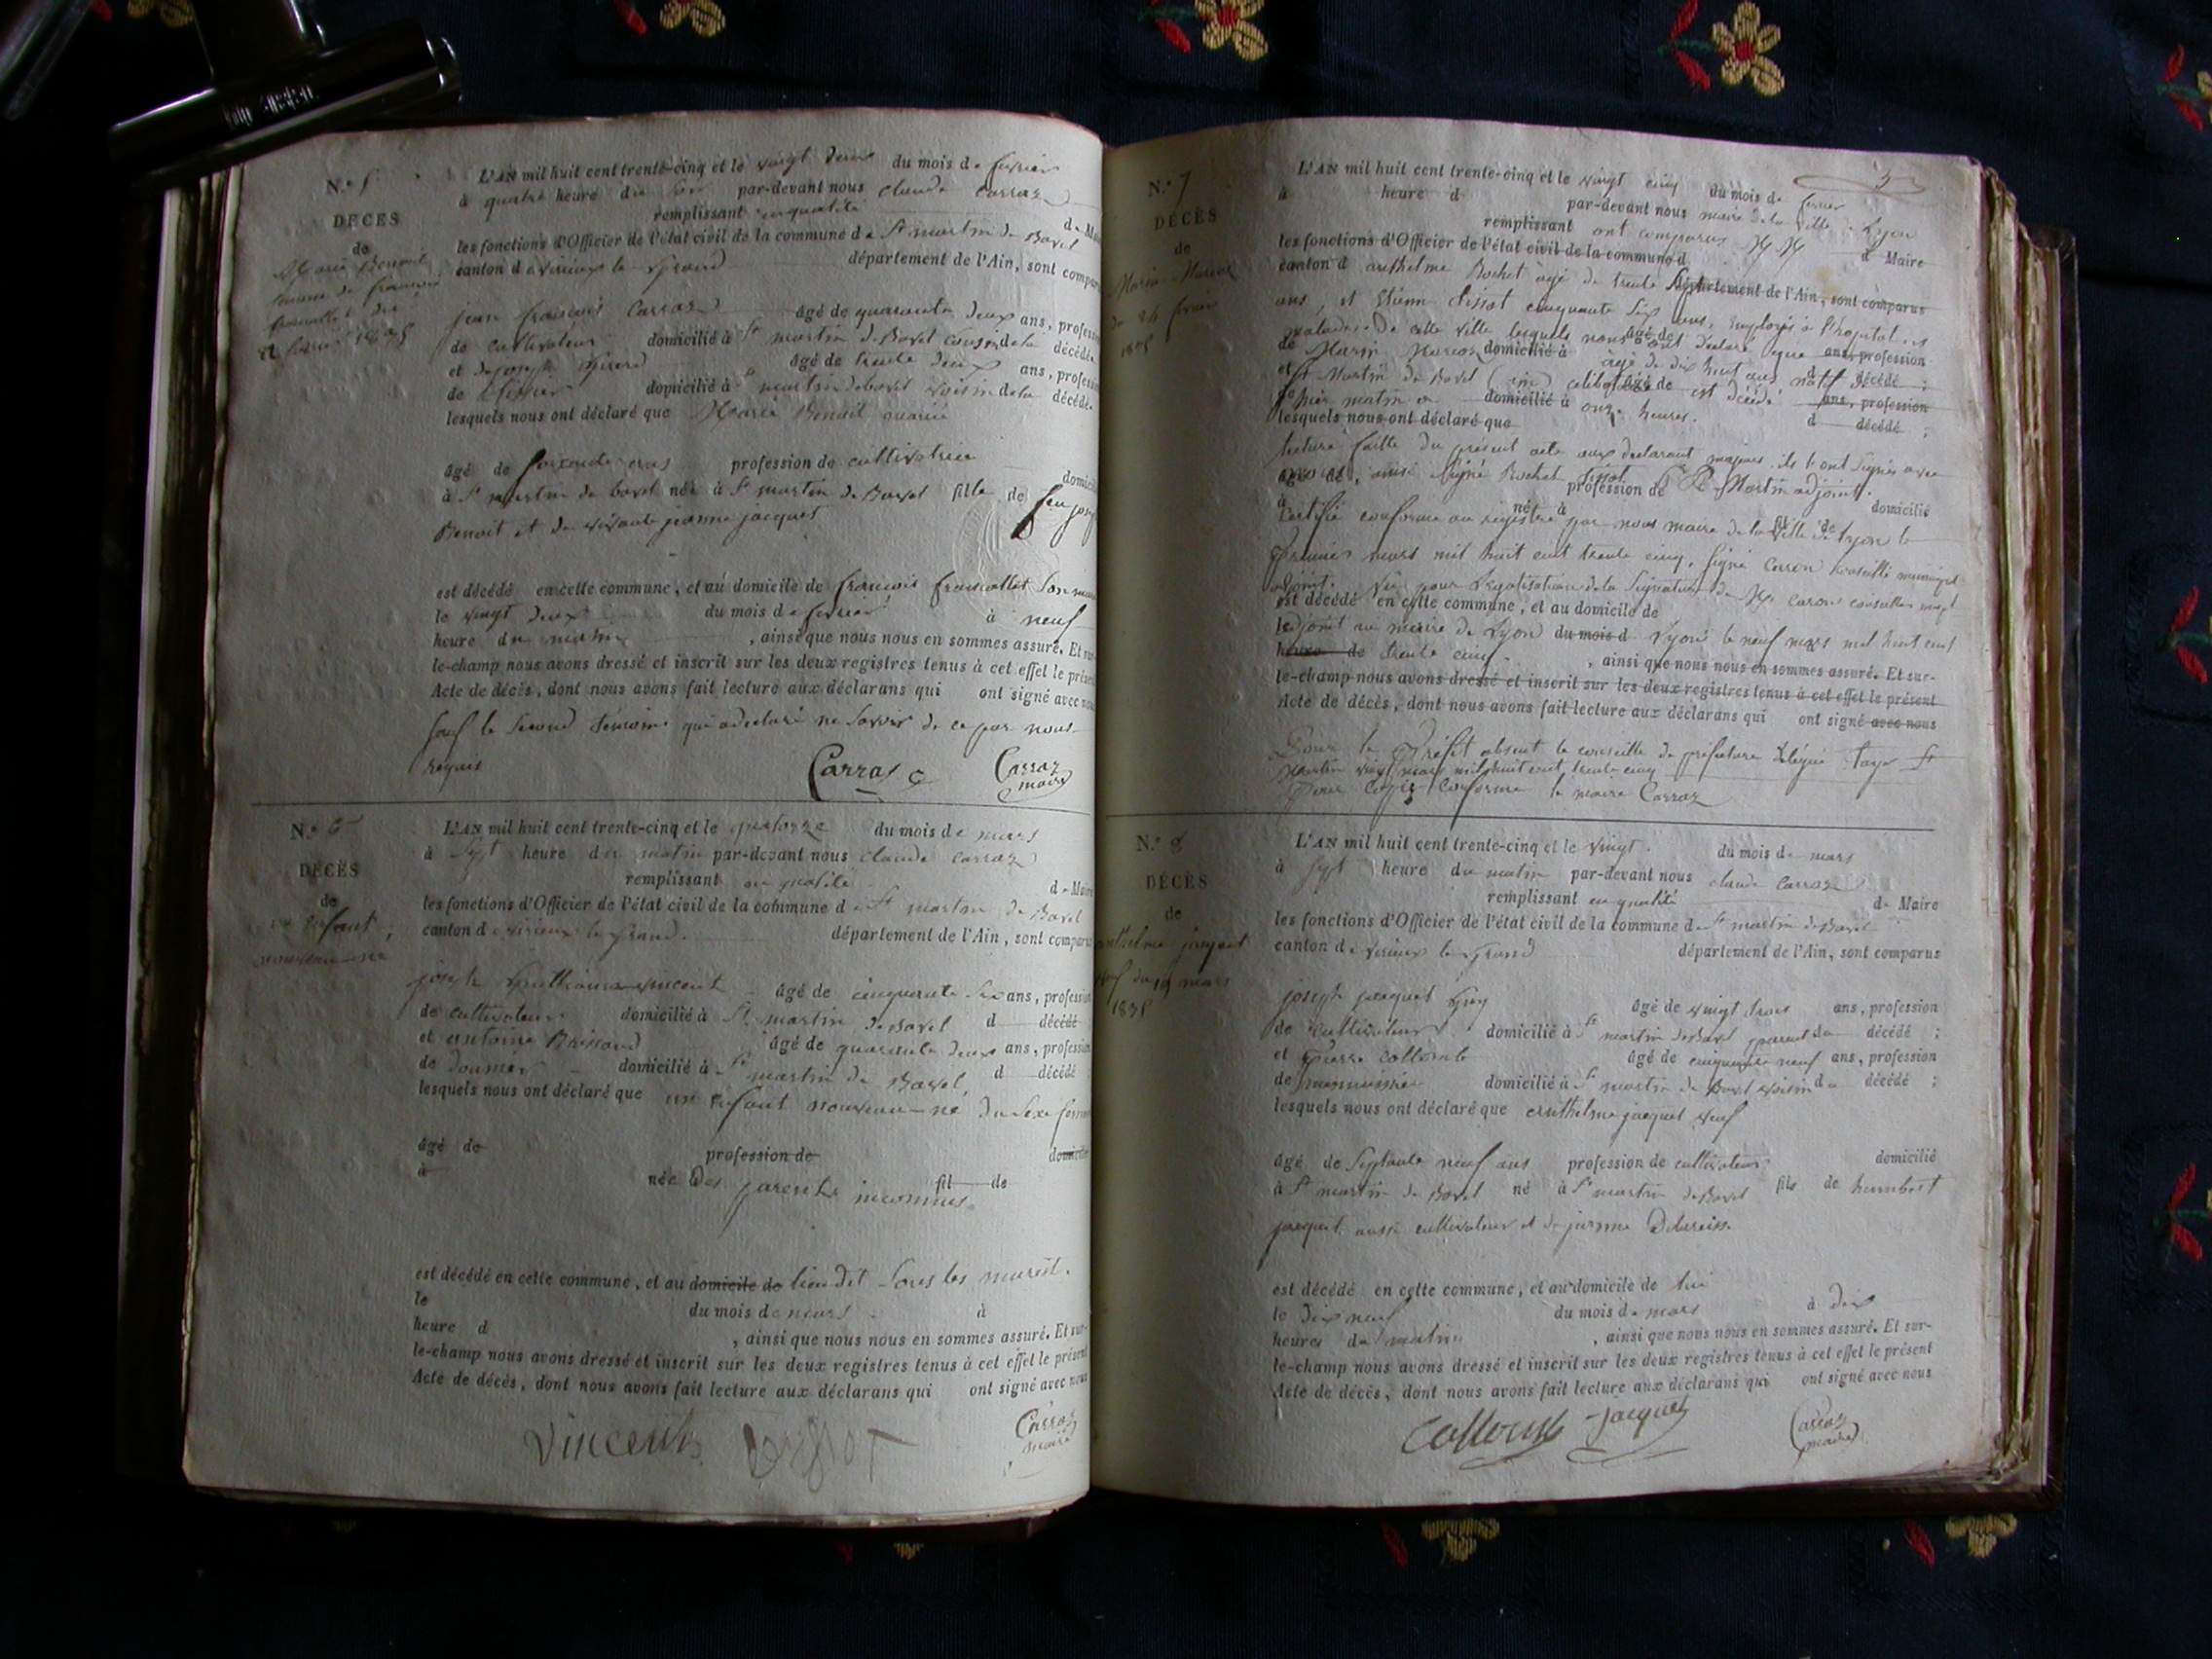 N.º 5
DÉCÈS
de
Marie Benoit
femme de françois
L'AN mil huit cent trente-cinq et le vingt deux du mois de fevrier
à quatre heure du soir par-devant nous claude Carraz
remplissant en qualité de Maire
les fonctions d'Officier de l'état civil de la commune de St martin de Bavel
canton de virieux le grand département de l'Ain, sont compar
jean françois Carraz âgé de quarante deux ans, profess
de cultivateur domicilié à St martin de Bavel cousin de la décédé
et de joseph âgé de trente deux ans, profess
de domicilié à St martin de bavel voisin de la décédé
lesquels nous ont déclaré que Marie Benoit
âgé de soixante ans profession de cultivatrice domicil
à St martin de bavel née à St martin de Bavel fille de feu
Benoit et de vivante jeanne jacquet
est décédé en cette commune, et au domicile de francois son
le vingt deux du mois de fevrier à neuf
heure du matin, ainsi que nous nous en sommes assuré. Et sur
le-champ nous avons dressé et inscrit sur les deux registres tenus à cet effet le présent
Acte de décès, dont nous avons fait lecture aux déclarans qui ont signé avec nous
sauf le second témoin qui a déclaré ne savoir de ce par nous
requis
Carraz
Carraz
maire
N.º 6
DÉCÈS
de
un enfant
nouveau-né
L'AN mil huit cent trente-cinq et le quatorze du mois de mars
à sept heure du matin par-devant nous claude Carraz
remplissant en qualité de Maire
les fonctions d'Officier de l'état civil de la commune de St martin de Bavel
canton de virieux le grand département de l'Ain, sont comparus
joseph vincent âgé de cinquante six ans, profession
de cultivateur domicilié à St martin de Bavel d décédé
et antoine âgé de quarante deux ans, profession
de domicilié à St martin de Bavel d décédé
lesquels nous ont déclaré que un enfant nouveau-né du sexe
âgé de profession de domicilié
à née des parents inconnus fil de
est décédé en cette commune, et au domicile de lieu dit sous les
le du mois de mars à
heure d, ainsi que nous nous en sommes assuré. Et sur-
le-champ nous avons dressé et inscrit sur les deux registres tenus à cet effet le présent
Acte de décès, dont nous avons fait lecture aux déclarans qui ont signé avec nous
Vincent
Carraz
maire
5
N.º 7
DÉCÈS
de
L'AN mil huit cent trente-cinq et le vingt cinq du mois de fevrier
à heure d par-devant nous maire de la ville de Lyon
remplissant ont comparus d Maire
les fonctions d'Officier de l'état civil de la commune d
canton d anthelme Rochet agé de trente département de l'Ain, sont comparus
ans, et Etienne Tissot cinquante six ans, employés à l'hopital
malades de cette ville lesquels nous ont declaré que âgé de ans, profession
de domicilié à agé de dix huit ans natif de décédé ;
et St Martin de Bavel (ain) celibataire est décédé âgé de ans, profession
hier matin à domicilié à onze heures.
lesquels nous ont déclaré que d décédé ;
lecture faite du present acte aux declarant majeurs ils l'ont signés avec
âgé de signé Rochet Tissot profession de Martin adjoint.
à né à domicilié
Certifié conforme au registre par nous maire de la ville de Lyon le
premier mars mil huit cent trente cinq, signé Caron conseillé municipal
adjoint. Vu pour Legalisation de la signature de Mr Caron conseiller
est décédé en cette commune, et au domicile de
adjoint au maire de Lyon du mois d Lyon le neuf mars mil huit cent
heure de trente cinq., ainsi que nous nous en sommes assuré. Et sur-
le-champ nous avons dressé et inscrit sur les deux registres tenus à cet effet le présent
Acte de décès, dont nous avons fait lecture aux déclarans qui ont signé avec nous
Pour le Préfet absent le conseille de préfecture délégué St
Martin vingt mars mil huit cent trente cinq
Pour Copie Conforme le maire Carraz
N.º 8
DÉCÈS
de
anthelme jacquet
veuf du 19 mars
1835
L'AN mil huit cent trente-cinq et le vingt du mois de mars
à sept heure du matin par-devant nous claude Carraz
remplissant en qualité de Maire
les fonctions d'Officier de l'état civil de la commune de St martin de Bavel
canton de virieux le grand département de l'Ain, sont comparus
joseph jacquet Guy âgé de vingt trois ans, profession
de cultivateur domicilié à St martin de Bavel parent du décédé ;
et pierre collomb âgé de cinquante neuf ans, profession
de menuisier domicilié à St martin de Bavel voisin du décédé ;
lesquels nous ont déclaré que anthelme jacquet veuf
âgé de septante neuf ans profession de cultivateur domicilié
à St martin de Bavel né à St martin de Bavel fils de humbert
jacquet aussi cultivateur et de
est décédé en cette commune, et au domicile de lui
le dix neuf du mois de mars à dix
heures du matin, ainsi que nous nous en sommes assuré. Et sur-
le-champ nous avons dressé et inscrit sur les deux registres tenus à cet effet le présent
Acte de décès, dont nous avons fait lecture aux déclarans qui ont signé avec nous
Collomb Jacquet
Carraz
maire